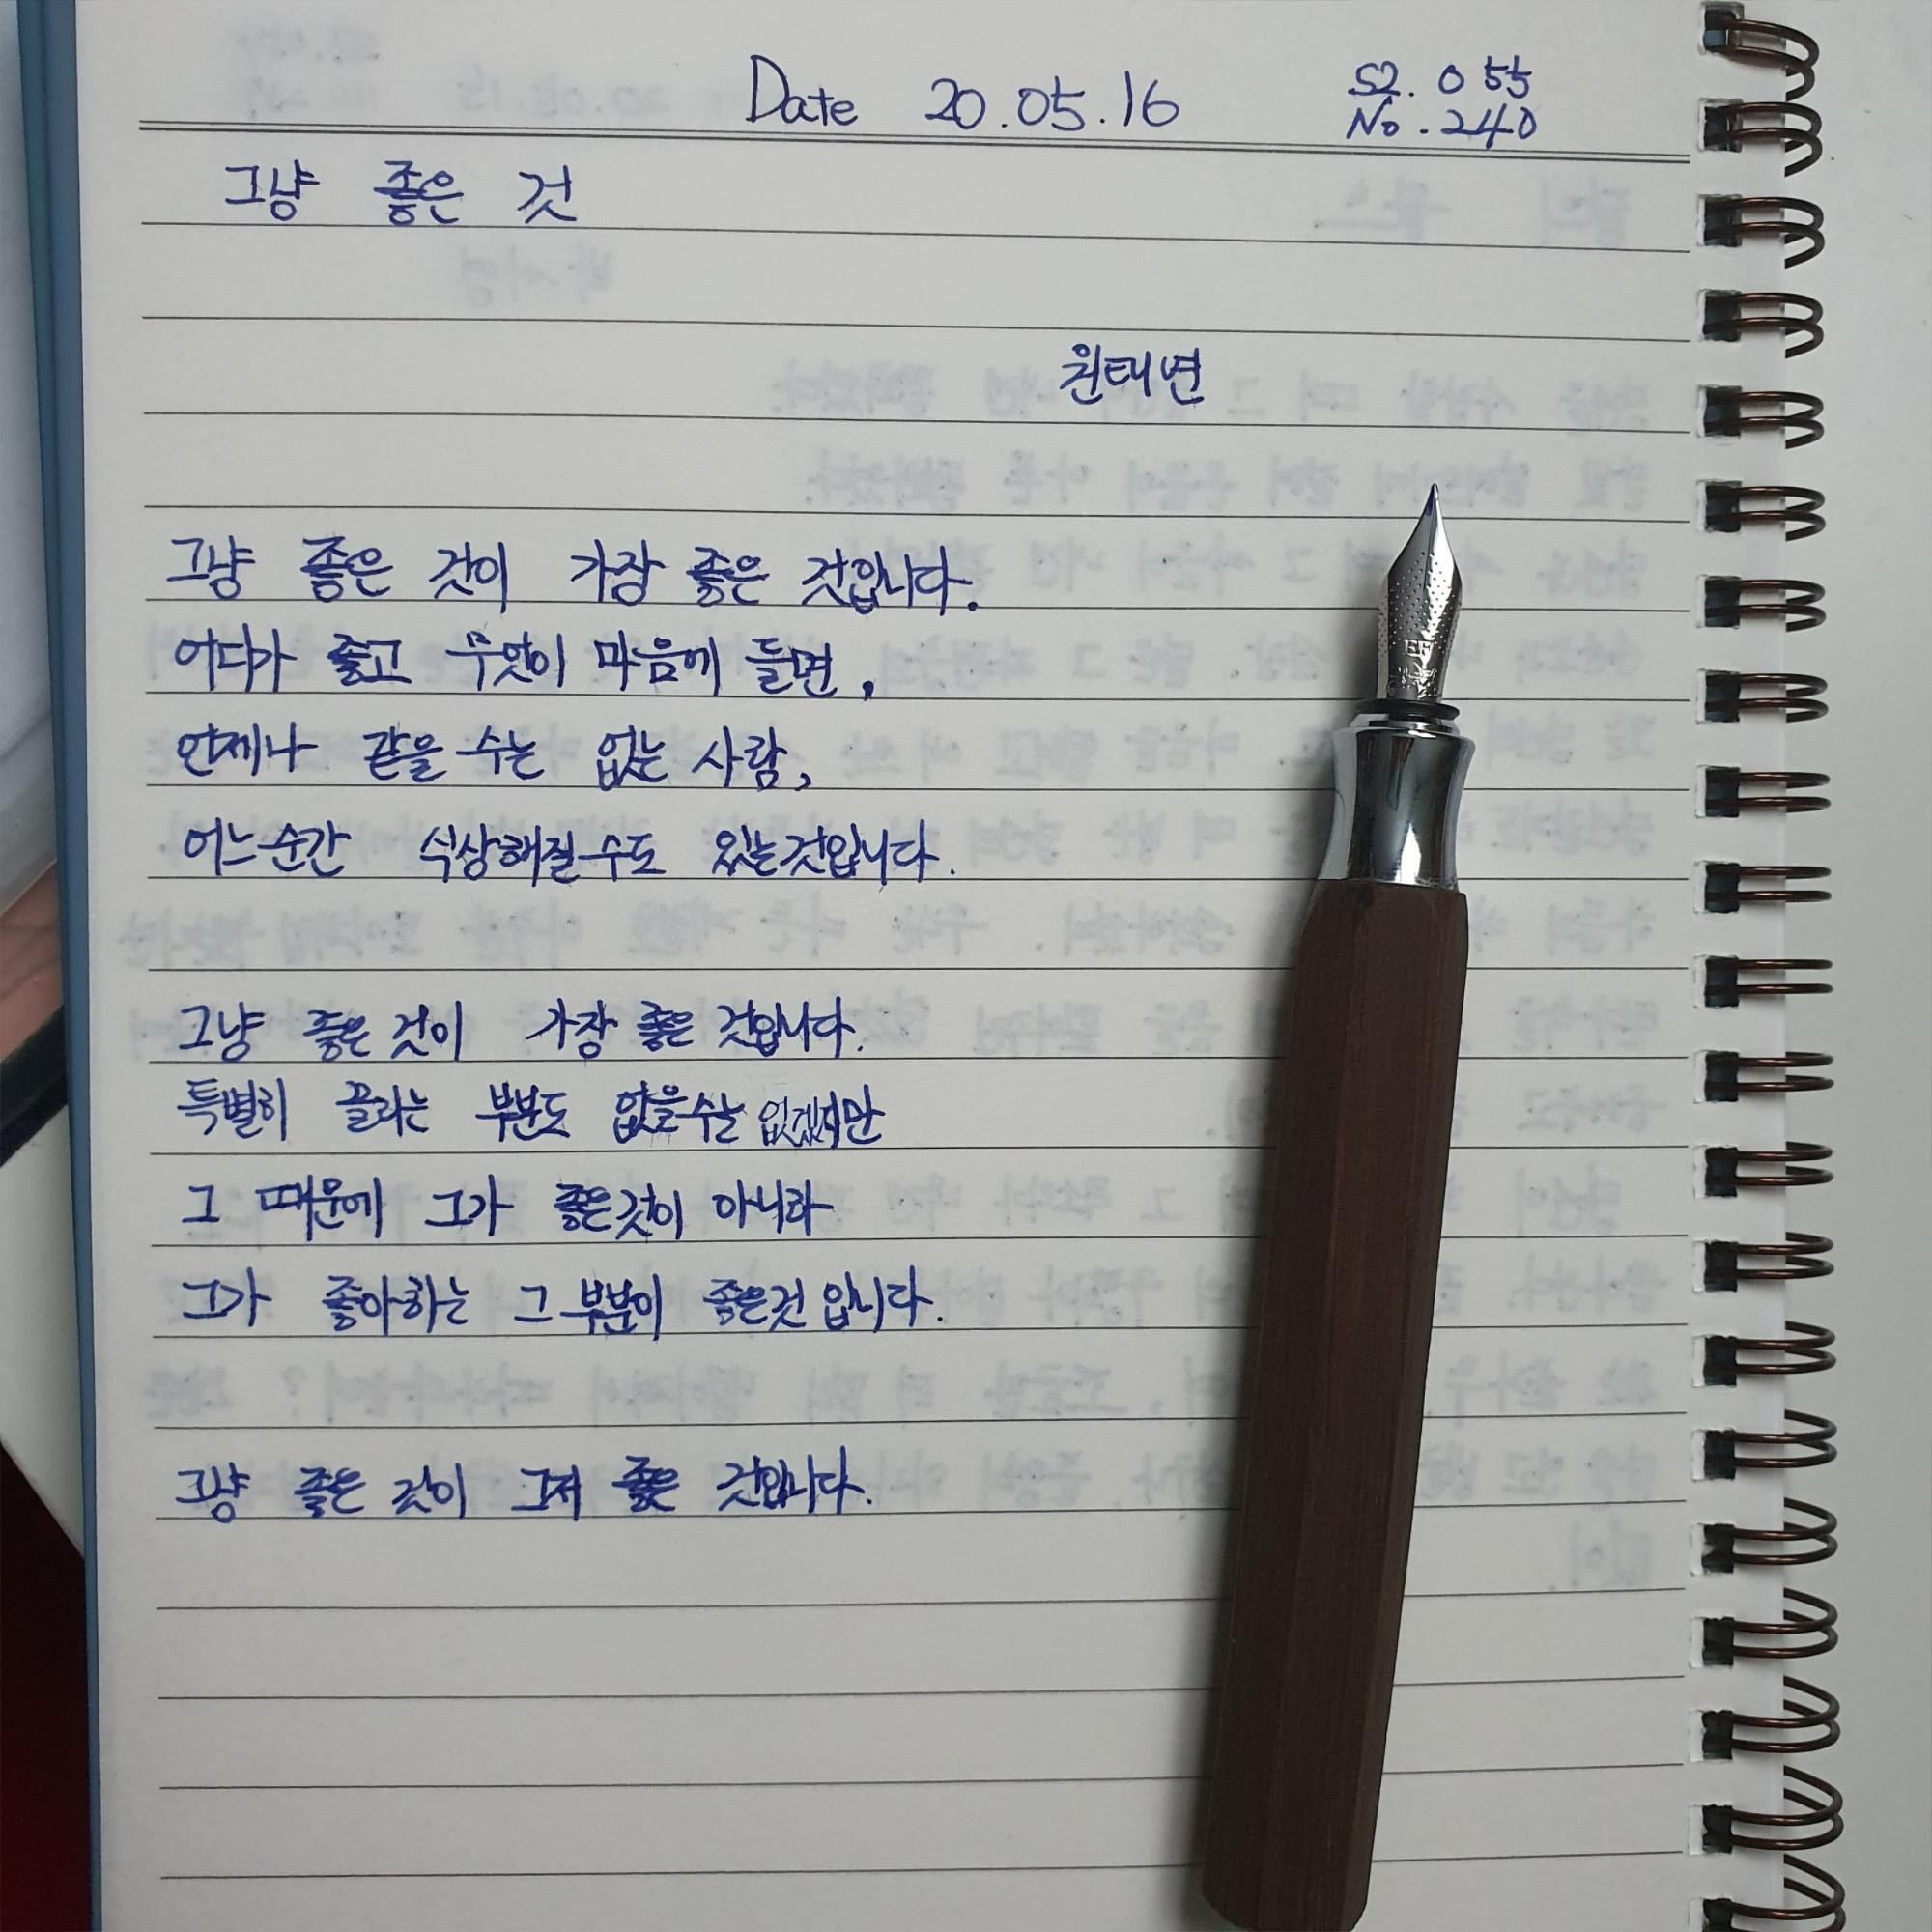 Date 20.05.16
S2. 055
No. 240
그냥 좋은 것
원태연
그냥 좋은 것이 가장 좋은 것입니다.
어디가 좋고 무엇이 마음에 들면,
언제나 같을 수는 없는 사람,
어느 순간 식상해질 수도 있는것입니다.
그냥 좋은 것이 가장 좋은 것입니다.
특별히 끌리는 부분도 없을수는 없겠지만
그 때문에 그가 좋은것이 아니라
그가 좋아하는 그 부분이 좋은것 입니다.
그냥 좋은 것이 그저 좋은 것입니다.
EF